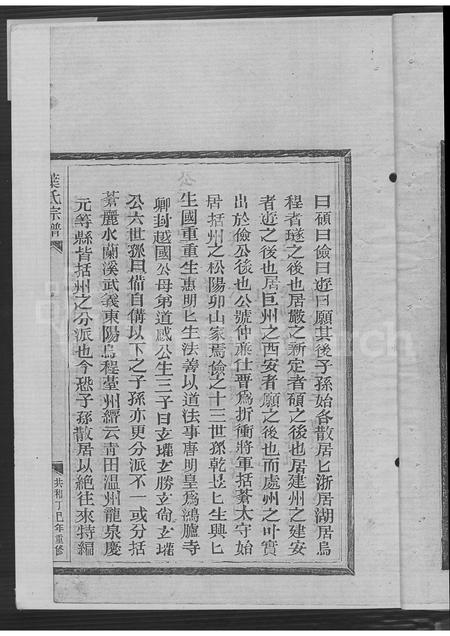 曰碩曰儉曰逰曰願其後子孫始各散居匕浙居湖居烏
程者璲之後也居嚴之新定者碩之後也居建州之建安
者逰之後也居巨州之西安者願之後也而處州之叶實
出於儉公後也公號仲𠅤仕晋爲折衝將軍括蒼太守始
居括州之松陽卯山家焉儉之十三世孫乾昱匕生興匕
生國重重生惠明匕生法善以道法事唐明皇爲鴻臚寺
卿封越國公母弟道感公生三子曰玄瓏玄勝玄尙玄瓏
公六世孫曰備自備以下之子孫亦更分派不一或分括
蒼麗水蘭溪武義東陽烏程臺州縉云青田温州龍泉慶
元等縣皆括州之分派也今恐子孫散居以絶往來特編
葉氏宗譜
共和丁巳年重修